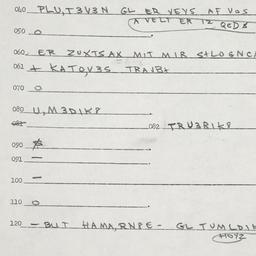 060 PLU,T3V3N GL ER VEYS AF VOS
A VELT ER IZ
050 O
060 ER ZUXTSAX MIT MIR
061 + KATOV3S TRAJB+
070 O
080 U,M3DIK?
081
082 TRU3RIK?
090
091 —
100 —
110 O
120 — BUT HAMA,RNPE — GL TUMLDIK